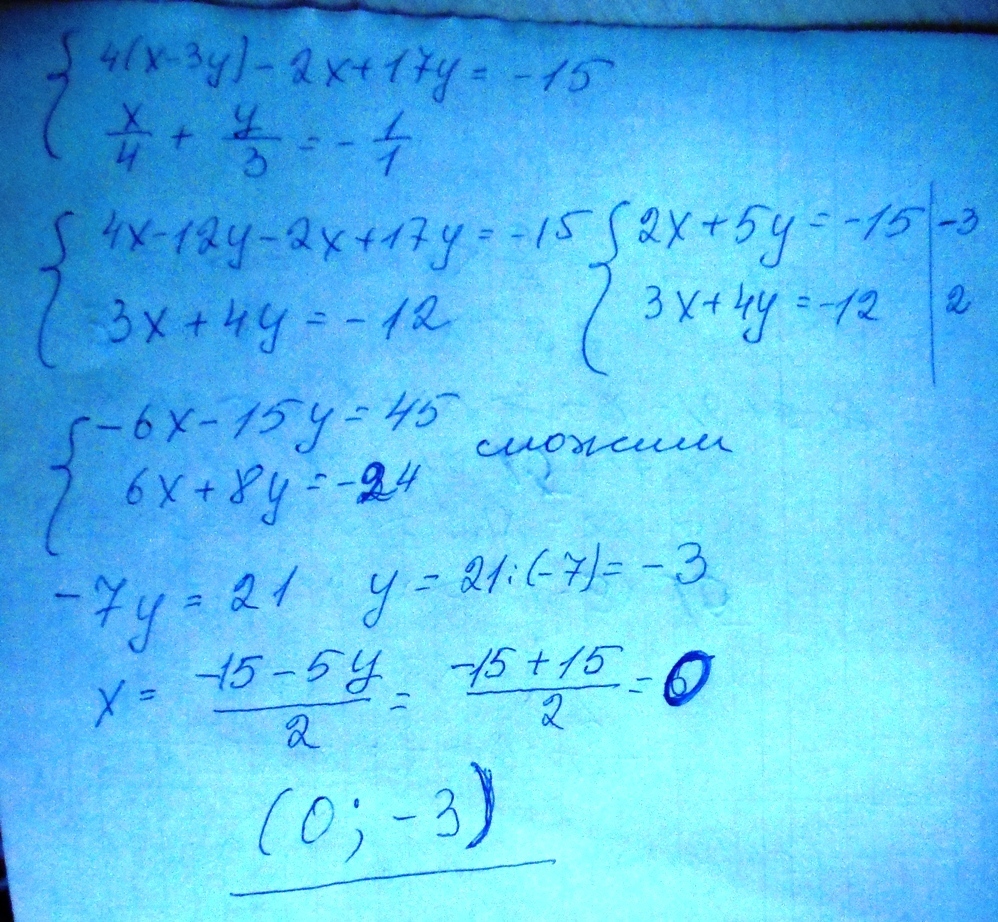 4(x-3y)-2x+17y=-15
x/4 + y/3 = -1/1
4x-12y-2x+17y=-15
3x+4y=-12
2x+5y=-15 | -3
3x+4y=-12 | 2
-6x-15y=45
6x+8y=-24
сложим
-7y=21 y=21:(-7)=-3
x= (-15-5y)/2 = (-15+15)/2 =0
(0;-3)